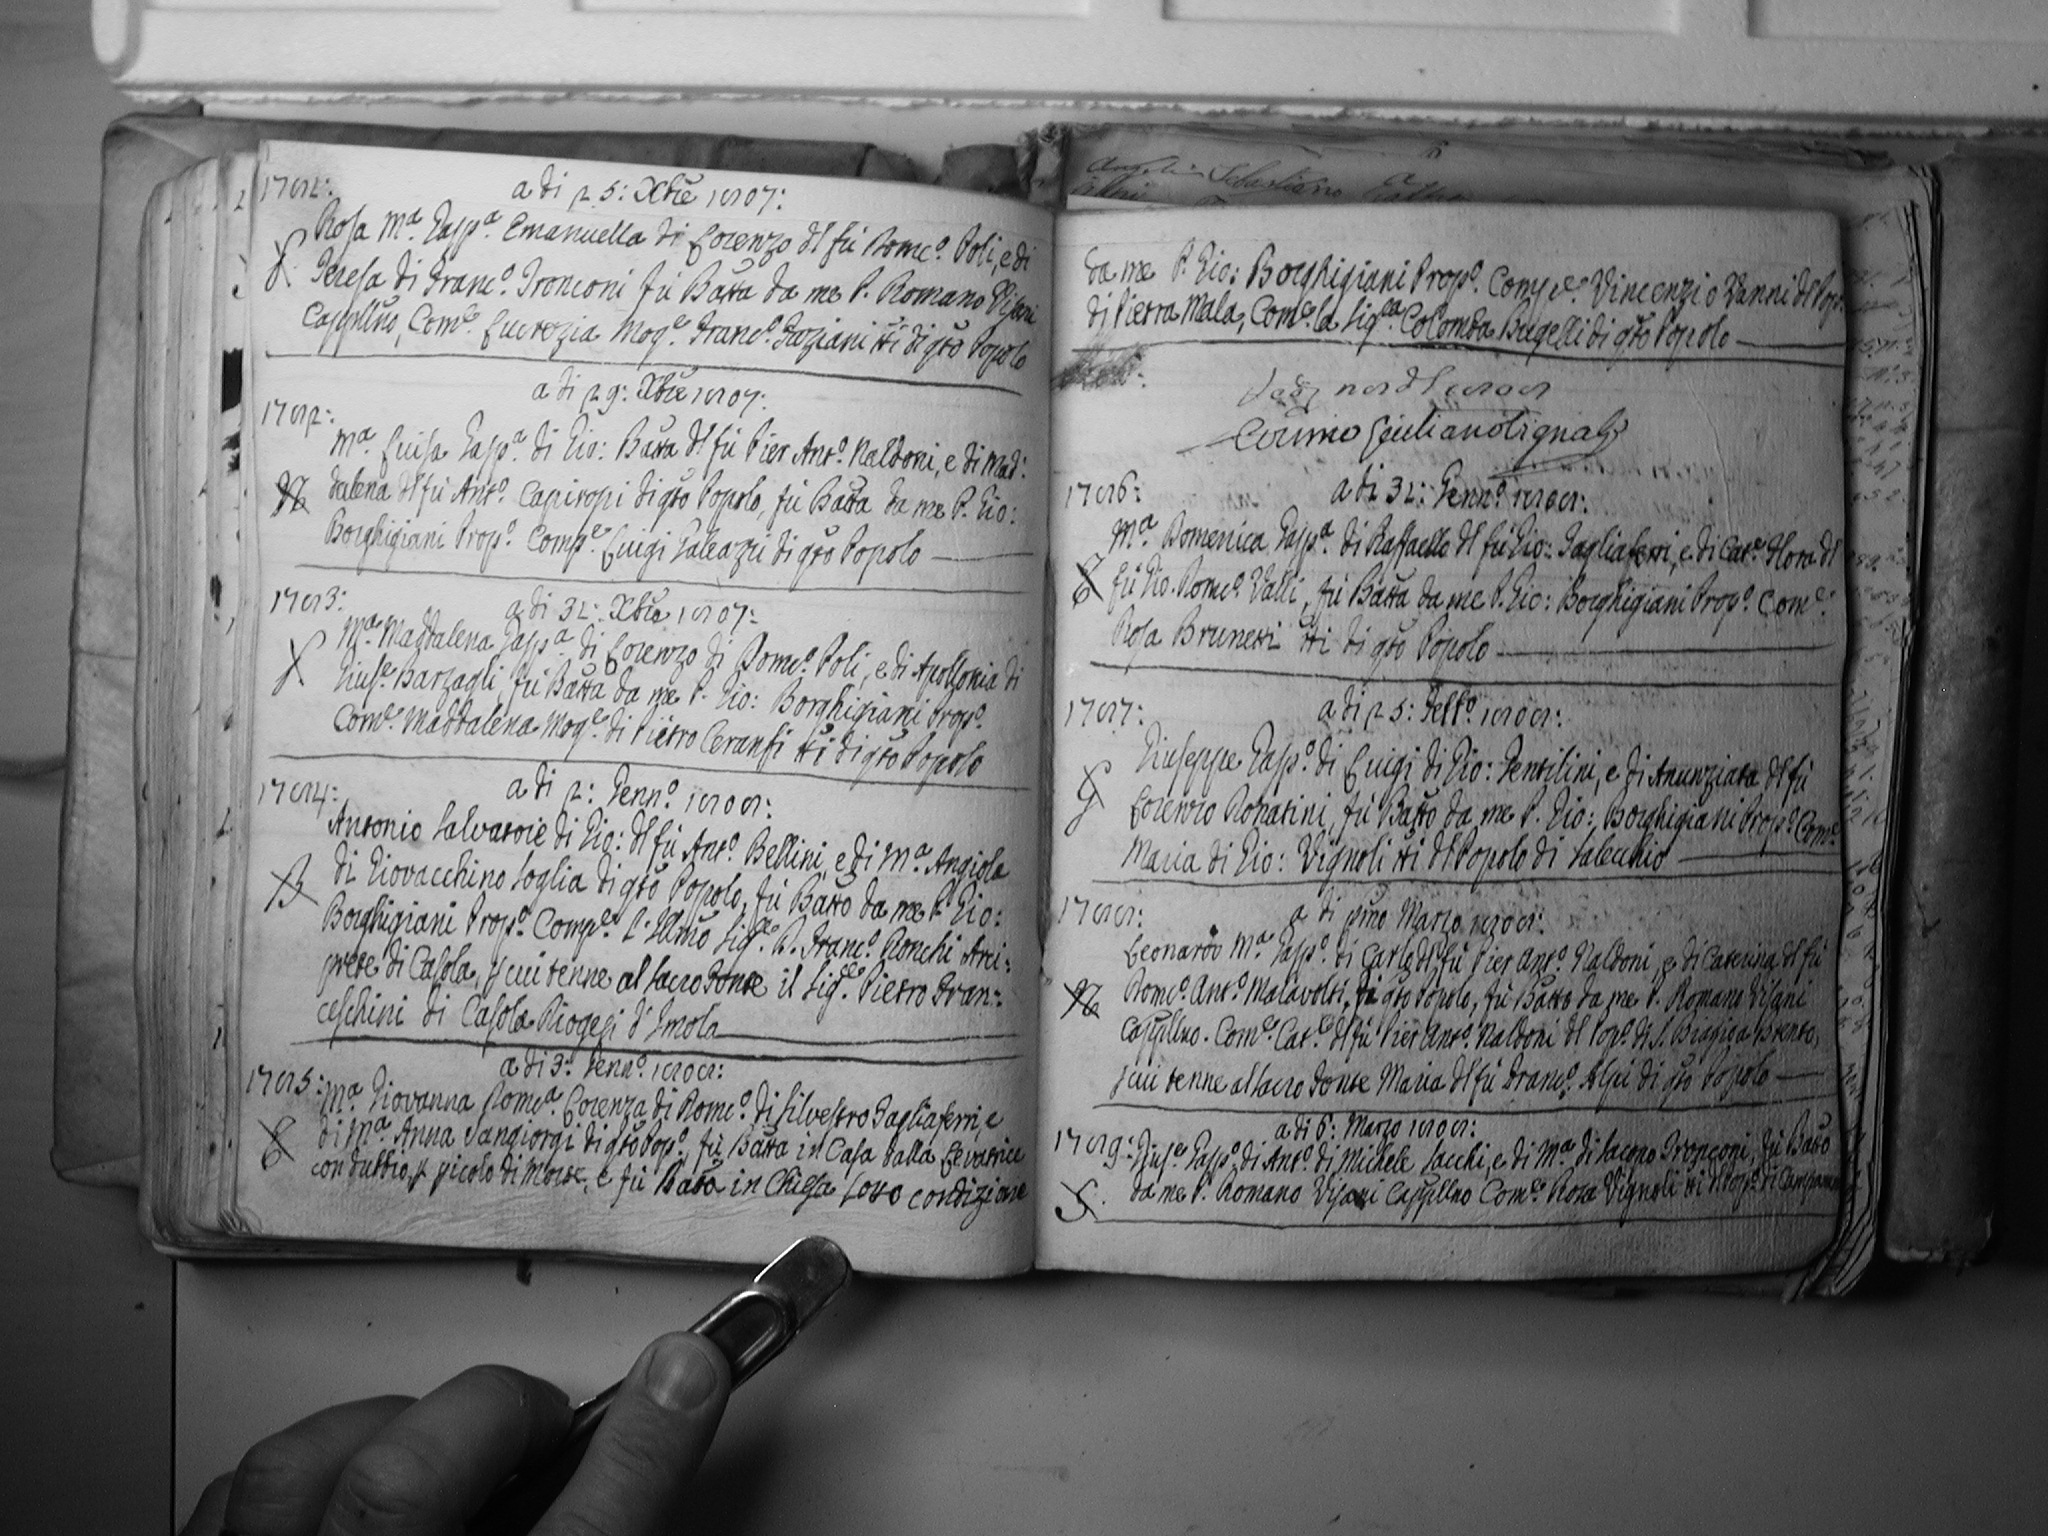 1781:
a di 25: Xbre 1807:
Rosa Ma. Gaspa. Emanuella di Lorenzo dl fù Domco. Poli, e di
Teresa di Franco. Tronconi fù Batta da me P. Romano Visani
Cappllno, Come. Lucrezia Moge. Franco. Graziani tti di qto Popolo
a di 29: Xbre 1807:
1782:
Ma. Luisa Gaspa. di Gio: Batta dl fù Pier Anto. Naldoni, e di Mad:
dalena dl fù Anto. Capiropi di qto Popolo, fù Batta da me P. Gio:
Borghigiani Propo. Compe. Luigi Galeazzi di qto Popolo
1783:
a di 31: Xbre 1807:
Ma. Maddalena Gaspa. di Lorenzo di Domco. Poli, e di Apollonia di
Giuse. Barzagli, fù Batta da me P. Gio: Borghigiani Propo.
Come. Maddalena Moge. di Pietro Ceransi tti di qto Popolo
1784:
a di 2: Genno. 1808:
Antonio Salvatore di Gio: dl fù Anto. Bellini, e di Ma. Angiola
di Giovacchino Soglia di qto Popolo, fù Batto da me P. Gio:
Borghigiani Propo. Compe. l'Illmo Sige. D. Franco. Ronchi Arci-
prete di Casola, p cui tenne al Sacro Fonte il Sige. Pietro Fran-
ceschini di Casola Diogesi d'Imola
a di 3: Genno. 1808:
1785: Ma. Giovanna Domca. Lorenza di Domco. di Silvestro Tagliaferri, e
di Ma. Anna Sangiorgi di qto Popo., fù Batta in Casa dalla Levatrice
con dubbio, p picolo di Morte, e fù Batta in Chiesa sotto condizione
da me P. Gio: Borghigiani Propo. Compe. Vincenzio Vanni dl Popo.
di Pietra Mala, Come. la Siga. Colomba Bugelli di qto Popolo
Cosimo Giuliano Vignali
1786:
a di 31: Genno. 1808:
Ma. Domenica Gaspa. di Raffaello dl fù Gio: Tagliaferri, e di Cate. Flora dl
fù Gio. Domco. Valli, fù Batta da me P. Gio: Borghigiani Propo. Come.
Rosa Brunetti tti di qto Popolo
1787:
a di 25: Febbo. 1808:
Giuseppe Gaspo. di Luigi di Gio: Gentilini, e di Anunziata dl fù
Lorenzo Donatini, fù Batto da me P. Gio: Borghigiani Propo. Come.
Maria di Gio: Vignoli tti dl Popolo di Salecchio
1788:
a di pmo Marzo 1808:
Leonardo Ma. Gaspo. di Carlo dl fù Pier Anto. Naldoni, e di Caterina dl fù
Domco. Anto. Malavolti, di qto Popolo, fù Batto da me P. Romano Visani
Cappllno. Come. Cate. dl fù Pier Anto. Naldoni dl Popo. di S. Biagio a Brento,
p cui tenne al Sacro Fonte Maria dl fù Franco. Alpi di qto Popolo
a di 6: Marzo 1808:
1789: Giuse. Gaspo. di Anto. di Michele Sacchi, e di Ma. di Iacopo Tronconi, fù Batto
da me P. Romano Visani Cappllno Come. Rosa Vignoli tti dl Popo. di Campanara